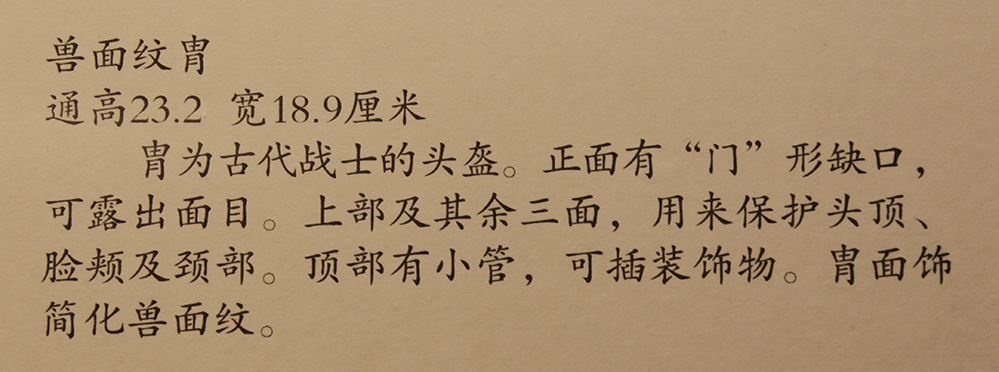 兽面纹胄
通高23.2 宽18.9厘米
胄为古代战士的头盔。正面有“门”形缺口，
可露出面目。上部及其余三面，用来保护头顶、
脸颊及颈部。顶部有小管，可插装饰物。胄面饰
简化兽面纹。